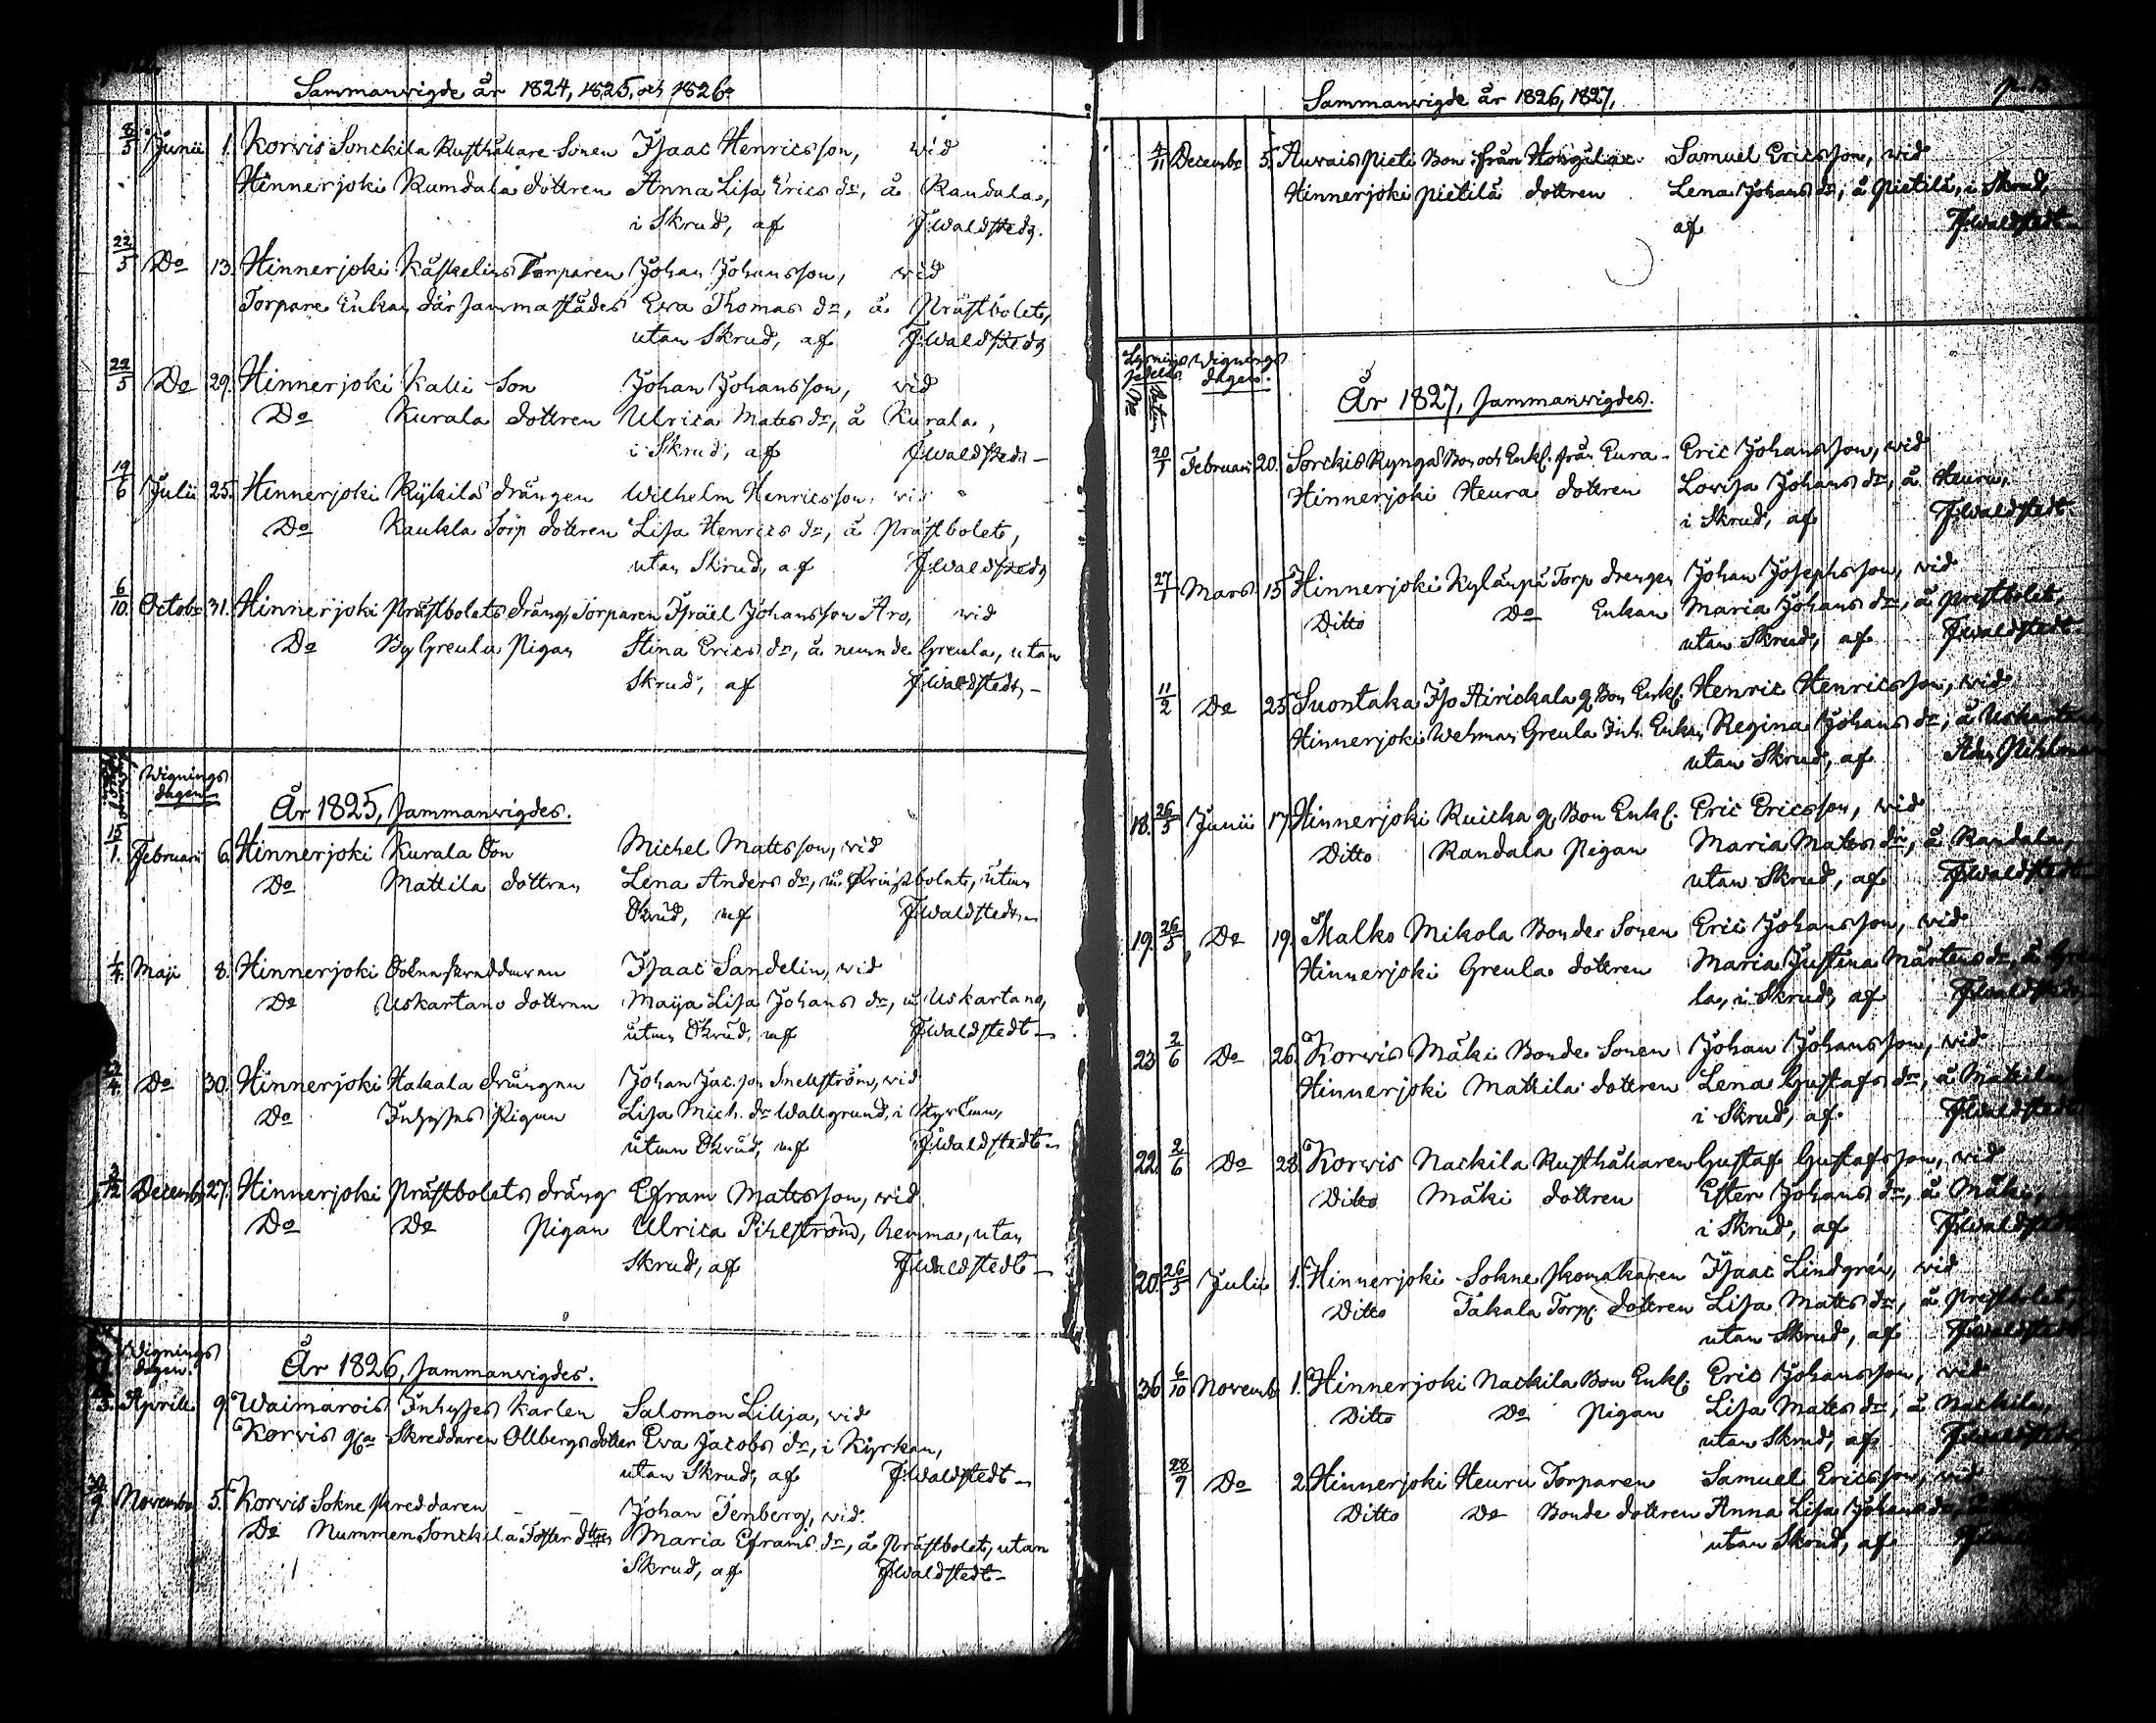 Sammanvigde år 1824, 1825, och 1826.
8/5 Junii 1. Korvis Sonckila Rusthållare Sonen Isaac Henricsson, vid
Hinnerjoki Randala dottren Anna Lisa Erics dr, å Randala,
i Skrud, af FWaldstedt.
22/5 Do 13. Hinnerjoki Käskelius Torparen Johan Johansson, vid
Torpare Enkan därsammastädes Eva Thomas dr, å Prästbolet,
utan Skrud, af FWaldstedt
22/5 Do 29. Hinnerjoki Kalli Son Johan Johansson, vid
Do Kurala dottren Ulrica Mats dr, å Kurala,
i Skrud, af FWaldstedt –
19/6 Julii 25. Hinnerjoki Kýkilä drängen Wilhelm Henricsson, vid
Do Kaukla Torp dottren Lisa Henrics dr, å Prästbolet,
utan Skrud, af FWaldstedt
6/10 Octobr 31. Hinnerjoki Prästbolets dräng, Torparen Israel Johansson Aro, vid
Do By Greula Pigan Stina Erics dr, å nemnde Greula, utan
Skrud, af FWaldstedt –
Wignings
dagen
År 1825, sammanvigdes.
15/1. Februarii 6. Hinnerjoki Kurala Son Michel Mattsson, vid
Do Mattila dottren Lena Anders dr, å Prästbolet, utan
Skrud, af FWaldstedt –
1/4. Maji 8. Hinnerjoki Sokneskreddaren Isaac Sandelin, vid
Do Uskartano dottren Maija Lisa Johans dr, å Uskartano,
utan Skrud, af FWaldstedt –
/4. Do 30. Hinnerjoki Hakala drängen Johan Jac.son Snellström, vid
Do Inhyses Pigan Lisa Mich. dr Wallgrund, i Kyrkan,
utan Skrud, af FWaldstedt –
3/12 Decemb. 27. Hinnerjoki Prästbolets dräng Efram Mattsson, vid
Do Do Pigan Ulrica Pihlström, hemma, utan
Skrud, af FWaldstedt –
Wignings
dagen.
År 1826, sammanvigdes.
Aprill 9. Waimarois Inhyses Karlen Salomon Lilja, vid
Korvis Skreddaren Ollbergs dotter Eva Jacobs dr, i Kyrkan,
utan Skrud, af FWaldstedt –
Novembr 5. Korvis Sokne skreddaren – – Johan Tenberg, vid
Do Nummen Sonckila Foster dttren Maria Eframs dr, å Prästbolet, utan
Skrud, af FWaldstedt –
Sammanvigde år 1826, 1827,
4/11 Decembr 5. Auvais Pieti Bon från Honilax Samuel Ericsson, vid
Hinnerjoki Pietilä dottren Lena Johans dr, å Pietilä, i Skrud,
af FWaldstedt –
Lysnings Wignings
dagen.
No Datum
År 1827, sammanvigdes.
20/1 Februarii 20. Sorckis Rynga Bon och Enkl. från Eura – Eric Johansson, vid
Hinnerjoki Heura dottren Lovisa Johans dr, å Heura,
i Skrud, af FWaldstedt
27/1 Mars 15. Hinnerjoki Kyläupä Torp drengen Johan Josephsson, vid
Ditto Do Enkan Maria Johans dr, å prestbolet,
utan Skrud, af FWaldstedt
11/2 Do 25. Suontaka Iso Airickala g. Bon Enkl. Henric Henricsson, vid
Hinnerjoki Wehman Greula Inh. Enkan Regina Johans dr, å Uskartano
utan Skrud, af
18. 26/5 Junii 17. Hinnerjoki Ruicka g. Bon Enkl. Eric Ericsson, vid
Ditto Randala Pigan Maria Mats dr, å Randala,
utan Skrud, af FWaldstedt
19. 26/5 Do 19. Malko Mikola Bonde Sonen Eric Johansson, vid
Hinnerjoki Greula dottren Maria Justina Mårtens dr, å Greu
la, i Skrud, af FWaldstedt
23 2/6 Do 26. Korvis Mäki Bonde Sonen Johan Johansson, vid
Hinnerjoki Mattila dottren Lena Gustafs dr, å Mattila,
i Skrud, af FWaldstedt
22. 2/6 Do 28. Korvis Nackila Rusthållaren Gustaf Gustafsson, vid
Ditto Mäki dottren Ester Johans dr, å Mäki,
i Skrud, af FWaldstedt
20. 26/5 Julii 1. Hinnerjoki Sokne skomakaren Isaac Lindgrén, vid
Ditto Takala Torp. dottren Lisa Matts dr, å Prestbolet,
utan Skrud, af FWaldstedt
36 6/10 Novembr 1. Hinnerjoki Nackila Bon Enkl. Eric Johansson, vid
Ditto Do Pigan Lisa Mats dr, å Nackila,
utan Skrud, af FWaldstedt
28/9 Do 2. Hinnerjoki Heuru Torparen Samuel Ericsson, vid
Ditto Do Bonde dottren Anna Lisa Johans dr,
utan Skrud, af